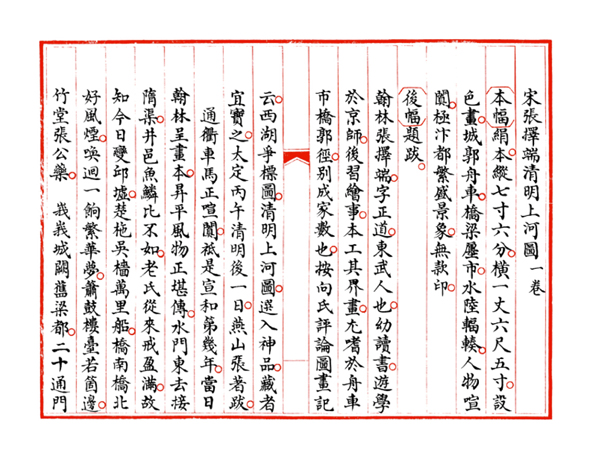 宋張擇端清明上河圖 一卷
本幅絹本縱七寸六分橫一丈六尺五寸設
色畫城郭舟車橋梁廛市水陸輻輳人物喧
闐極汴都繁盛景象無款印
後幅題跋
翰林張擇端字正道東武人也幼讀書遊學
於京師後習繪事本工其界畫尤嗜於舟車
市橋郭徑別成家數也按向氏評論圖畫記
云西湖爭標圖清明上河圖選入神品藏者
宜寶之太定丙午清明後一日燕山張著跋
通衢車馬正喧闐祗是宣和第幾年當日
翰林呈畫本昇平風物正堪傳水門東去接
隋渠井邑魚鱗比不如老氏從來戒盈滿故
知今日變邱墟楚柂吳檣萬里船橋南橋北
好風煙喚迴一餉繁華夢簫鼓樓臺若箇邊
竹堂張公藥 峩峩城闕舊梁都二十通門